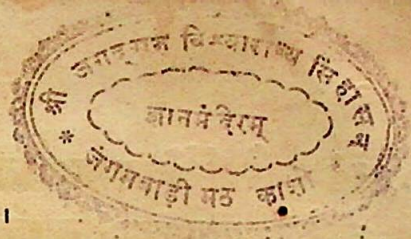 श्री जगद्गुरु विश्वाराध्य सिंहासन
ज्ञानमंदिरम्
* जंगमवाड़ी मठ काशी